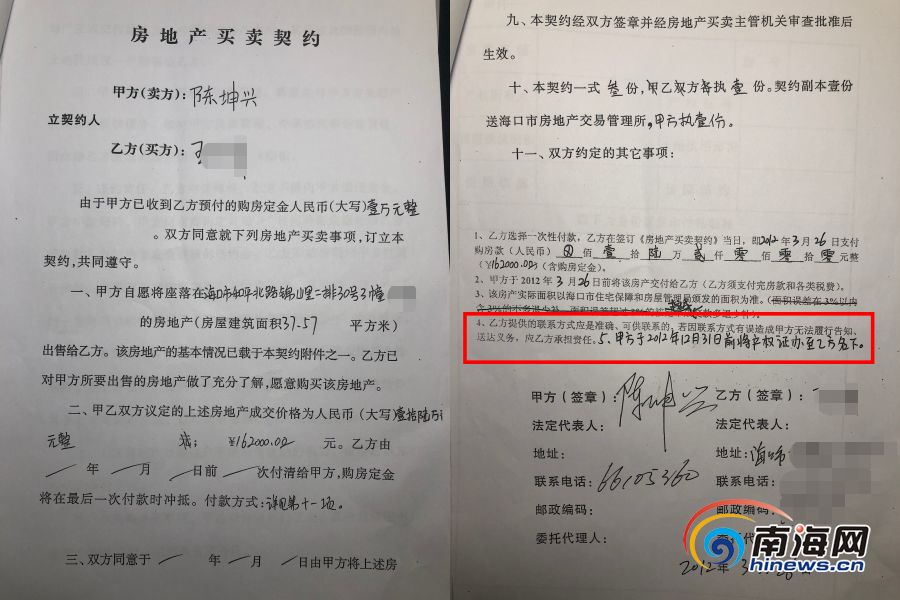 房地产买卖契约
甲方(卖方)：陈坤兴
立契约人
乙方(买方)：王
由于甲方已收到乙方预付的购房定金人民币(大写)壹万元整
。双方同意就下列房地产买卖事项，订立本
契约，共同遵守。
一、甲方自愿将座落在海口市和平北路锦山里二排30号3幢
的房地产(房屋建筑面积37.57 平方米)
出售给乙方。该房地产的基本情况已载于本契约附件之一。乙方已
对甲方所要出售的房地产做了充分了解，愿意购买该房地产。
二、甲乙双方议定的上述房地产成交价格为人民币(大写)壹拾陆万
元整 ￥162000.00 元。乙方由
年 月 日前 次付清给甲方，购房定金
将在最后一次付款时冲抵。付款方式：详见第十一项。
三、双方同意于 年 月 日由甲方将上述房
九、本契约经双方签章并经房地产买卖主管机关审查批准后
生效。
十、本契约一式 叁份，甲乙双方各执 壹份。契约副本壹份
送海口市房地产交易管理所，甲方执壹份。
十一、双方约定的其它事项：
1、乙方选择一次性付款，乙方在签订《房地产买卖契约》当日，即2012年3月26日支付
购房款(人民币) 佰 壹 拾 陆 万 贰 仟 零 佰 零 拾 零 元整
(￥162000.00)(含购房定金)。
2、甲方于2012年3月26日前将该房产交付给乙方(乙方须支付完房款和各类税费)。
3、该房产实际面积以海口市住宅保障和房屋管理局颁发的面积为准。(面积误差在3%以内
4、乙方提供的联系方式应是准确、可供联系的，若因联系方式有误造成甲方无法履行告知、
送达义务，应乙方承担责任。5、甲方于2012年12月31日前将产权证办至乙方名下。
甲方(签章)：陈坤兴 乙方(签章)：
法定代表人： 法定代表人：
地址： 地址：海口市
联系电话：66105360 联系电话：
邮政编码： 邮政编码：
委托代理人： 委
2012年3月26日
南海网
hinews.cn